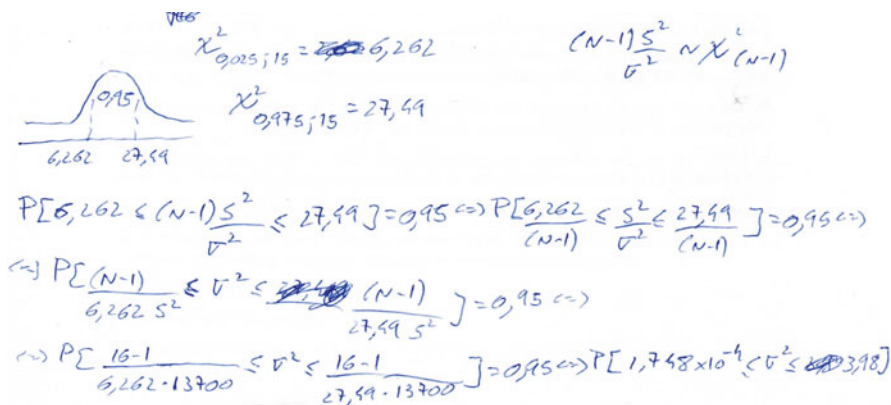 χ²_{0,025;15} = 6,262
(N-1) S²/σ² ~ χ²_{(N-1)}
0,95
χ²_{0,975;15} = 27,49
6,262 27,49
P[6,262 ≤ (N-1) S²/σ² ≤ 27,49] = 0,95 <=> P[6,262/(N-1) ≤ S²/σ² ≤ 27,49/(N-1)] = 0,95 <=>
<=> P[(N-1)/(6,262 S²) ≤ σ² ≤ (N-1)/(27,49 S²)] = 0,95 <=>
<=> P[(16-1)/(6,262·13700) ≤ σ² ≤ (16-1)/(27,49·13700)] = 0,95 <=> P[1,748×10⁻⁴ ≤ σ² ≤ 3,98]